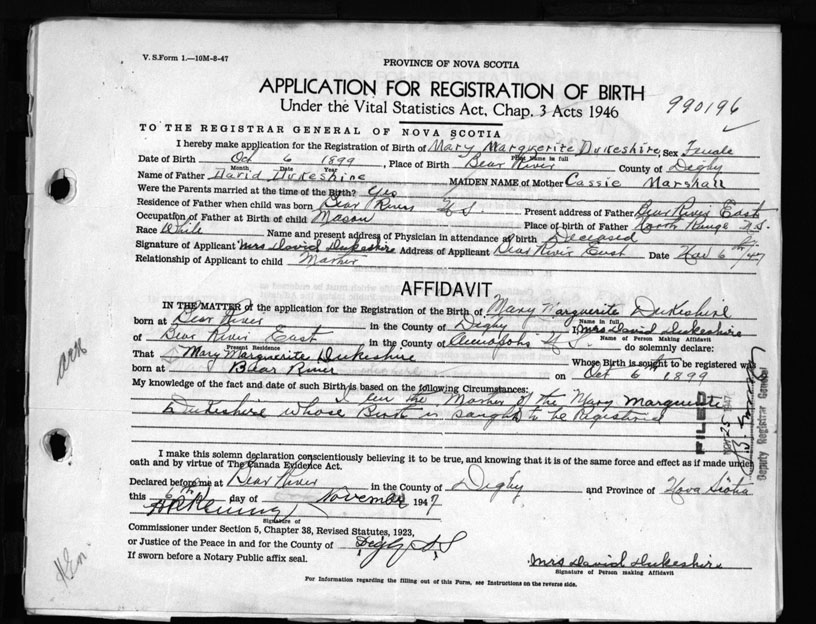 V. S. Form 1.—10M-8-47
PROVINCE OF NOVA SCOTIA
APPLICATION FOR REGISTRATION OF BIRTH
Under the Vital Statistics Act, Chap. 3 Acts 1946
990196
TO THE REGISTRAR GENERAL OF NOVA SCOTIA
I hereby make application for the Registration of Birth of Mary Marguerite Dukeshire, Sex Female
Print Name in full
Date of Birth Oct 6 1899, Place of Birth Bear River County of Digby
Month Date Year
Name of Father David Dukeshire MAIDEN NAME of Mother Cassie Marshall
Were the Parents married at the time of the Birth? Yes
Residence of Father when child was born Bear River N S. Present address of Father Bear River East
Occupation of Father at Birth of child Mason Place of birth of Father North Range N.S.
Race White Name and present address of Physician in attendance at birth Deceased
Signature of Applicant Mrs David Dukeshire Address of Applicant Bear River East Date Nov 6th/47
Relationship of Applicant to child Mother
AFFIDAVIT
IN THE MATTER of the application for the Registration of Birth of Mary Marguerite Dukeshire
Name in full
born at Bear River in the County of Digby I, Mrs David Dukeshire
Name of Person Making Affidavit
of Bear River East in the County of Annapolis N S. do solemnly declare:
Present Residence
That Mary Marguerite Dukeshire Whose Birth is sought to be registered was
born at Bear River on Oct 6th 1899
My knowledge of the fact and date of such Birth is based on the following Circumstances:
I am the Mother of the Mary Marguerite
Dukeshire whose Birth is saught to be Registried
FILED
NOV 25 1947
Deputy Registrar General
I make this solemn declaration conscientiously believing it to be true, and knowing that it is of the same force and effect as if made under
oath and by virtue of The Canada Evidence Act.
Declared before me at Bear River in the County of Digby and Province of Nova Scotia
this 6th day of November 1947
Signature of
Commissioner under Section 5, Chapter 38, Revised Statutes, 1923,
or Justice of the Peace in and for the County of Digby N S
If sworn before a Notary Public affix seal.
Mrs David Dukeshire
Signature of Person making Affidavit
For Information regarding the filling out of this Form, see Instructions on the reverse side.